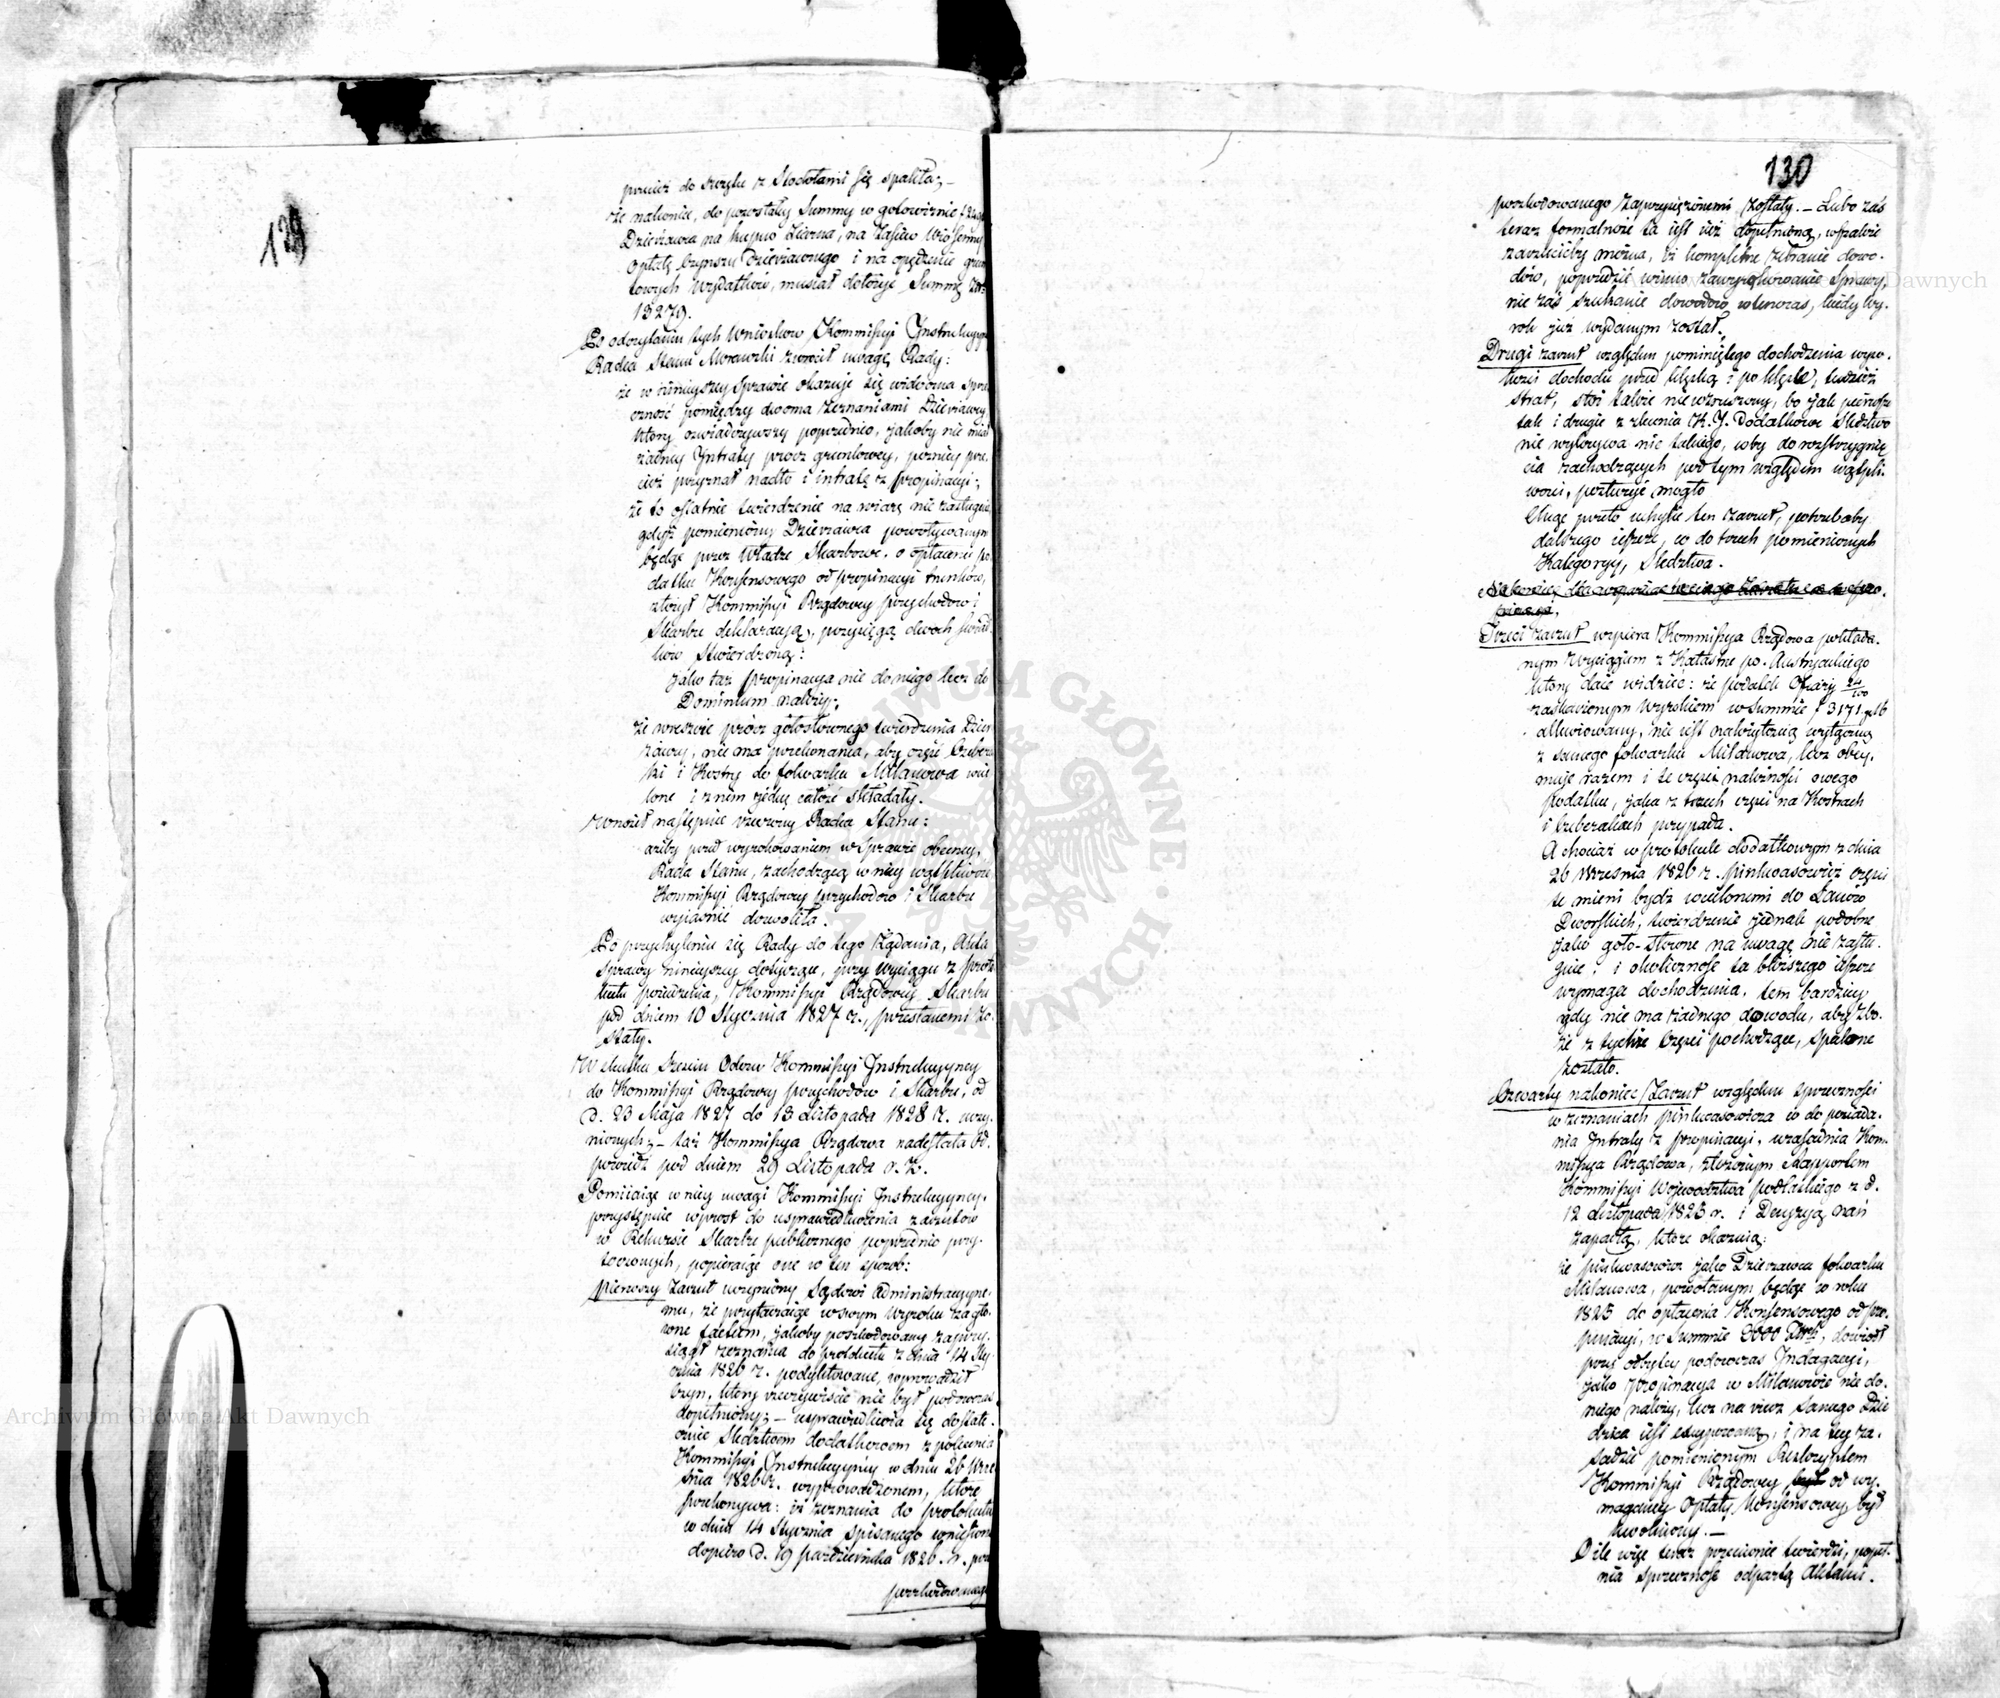 129
przecież do szczętu z Stodołami się spaliła; —
że nakoniec, do pozostałey Summy w gotowiznie
Dzierżawca na kupno Ziarna, na Zasiew Wiosenny
Opłatę Czynszu Dzierżawnego i na opędzenie grun
towych Wydatków, musiał dołożyć Summę
13279.
Po odczytaniu tych Wniosków Kommissyi Instrukcyyney
Radca Stanu Morawski zwrócił uwagę Rady:
że w ninieyszey Sprawie okazuje się widoczna sprze
czność pomiędzy dwoma zeznaniami Dzierżawcy
który oświadczywszy poprzednio, jakoby nie miał
żadney Intraty prócz gruntowey, pozniey prze
cież przyznał nadto i intratę z propinacyi;
że to ostatnie twierdzenie na wiarę nie zasługuie
gdyż pomieniony Dzierżawca powoływanym
będąc przez Władze Skarbowe o opłacenie po
datku Konsensowego od propinacyi trunków,
złożył Kommissyi Rządowey Przychodów i
Skarbu deklaracyą, przysięgą dwóch świad
ków stwierdzoną:
jako taż propinacya nie do niego lecz do
Dominium należy;
że wreszcie prócz gołosłownego twierdzenia Dzier
żawcy, nie ma przekonania, aby części Czubera
ki i Kostry do folwarku Milanowa wcie
lone i z nim jedną całość składały.
Wnosił następnie rzeczony Radca Stanu:
ażeby przed wyrokowaniem w Sprawie obecney,
Rada Stanu, zachodzącą w niey wątpliwość
Kommissyi Rządowey Przychodów i Skarbu
wyjaśnić dozwoliła.
Po przychyleniu się Rady do tego Żądania, Akta
sprawy ninieyszey dotyczące, przy Wyciągu z Proto
kułu posiedzenia, Kommissyi Rządowey Skarbu
pod dniem 10 Stycznia 1827 r., przesłanemi zo
stały.
W skutku sześciu Odezw Kommissyi Instrukcyyney
do Kommissyi Rządowey Przychodów i Skarbu, od
D. 23 Maja 1827 do 13 Listopada 1828 r. uczy
nionych; — taż Kommissya Rządowa nadesłała Od
powiedź pod dniem 29 Listopada r. z.
Pomijaiąc w niey uwagi Kommissyi Instrukcyyney,
przystępuie wprost do usprawiedliwienia zarzutów
w Rekursie Skarbu publicznego poprzednio przy
toczonych, popieraiąc one w ten sposób:
Pierwszy Zarzut uczyniony Sądowi Administracyyne
mu, że przytaczaiąc w swym Wyroku za gło
wne factum, jakoby poszkodowany zaprzy
siągł zeznania do protokułu z dnia 14 Sty
cznia 1820 r. podyktowane, wprowadził
Czyn, który rzeczywiście nie był podówczas
dopełniony; — usprawiedliwia się dostate
cznie Śledztwem dodatkowem z polecenia
Kommissyi Instrukcyyney w dniu 26 Wrze
śnia 1826 r. wyprowadzonem, które
przekonywa: iż zeznania do protokułu
w dniu 14 Stycznia spisanego wniesione
dopiero d. 19 Pazdziernika 1826 r. przez
poszkodowanego
130
poszkodowanego zaprzysiężonemi zostały. — Lubo zaś
teraz formalność ta jest już dopełnioną, wszakże
zarzucićby można, iż kompletne zebranie dowo
dów, poprzedzić winno zawyrokowanie Sprawy,
nie zaś szukanie dowodów wtenczas, kiedy Wy
rok już wydanym został.
Drugi zarzut względem pominiętego dochodzenia wyso
kości dochodu przed klęską i po klęsce, tudzież
strat, stoi także niewzruszony, bo jak pierwsze
tak i drugie z zlecenia K. I. Dodatkowe Śledztwo
nie wykrywa nic takiego, coby do rozstrzygnię
cia zachodzących pod tym względem wątpli
wości, posłużyć mogło
Chcąc przeto uchylić ten zarzut, potrzebaby
dalszego jeszcze, co do trzech pomienionych
Kategoryy, Śledztwa.
Trzeci zarzut wspiera Kommissya Rządowa poklada
nym Wyciągiem z Katastru po-Austryackiego
który daie widzieć: że podatek Ofiary 24/100
zaskarżonym Wyrokiem w Summie f 3171 gr 16
allewiowany, nie jest należytością wyłączną
z samego folwarku Milanowa, lecz obey
muje razem i te część należności owego
podatku, jaka z trzech części na Kostrach
i Czuberakach przypada.
A chociaż w protokule dodatkowym z dnia
26 Września 1826 r. Pinkwasowicz części
te mieni bydź wcielonemi do Łanów
Dworskich, twierdzenie jednak podobne
jako goło-słowne na uwagę nie zasłu
guie; i okoliczność ta bliższego jeszcze
wymaga dochodzenia, tem bardziey
gdy nie ma żadnego dowodu, aby zbo
że z tychże Części pochodzące, spalone
zostało.
Czwarty nakoniec Zarzut względem sprzeczności
w zeznaniach Pinkwasowicza co do posiada
nia Intraty z propinacyi, uzasadnia Kom
missya Rządowa, złożonym Rapportem
Kommissyi Województwa Podlaskiego z d.
12 Listopada 1825 r. i Decyzyą nań
zapadłą, które okazuią:
że Pinkwasowicz jako Dzierżawca folwarku
Milanowa, powołanym będąc w roku
1825 do opłacenia Konsensowego od pro
pinacyi, w Summie 2000 , dowiódł
przy odbytey podówczas Indagacyi,
jako propinacya w Milanowie nie do
niego należy, lecz na rzecz Samego Dzie
dzica jest exercowaną, i na tey za
sadzie pomienionym Reskryptem
Kommissyi Rządowey od wy
magalney Opłaty Konsensowey był
uwolniony. —
O ile więc teraz przeciwnie twierdzi, popeł
nia sprzeczność odpartą Aktami.
Archiwum Główne Akt Dawnych